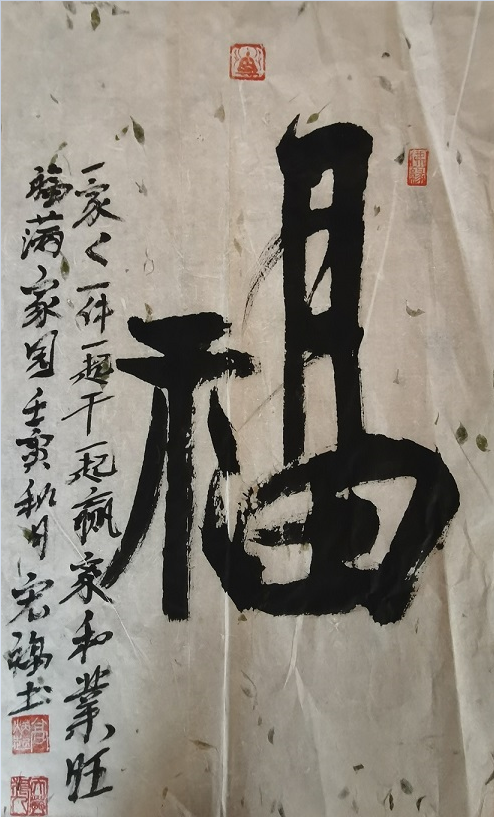 福
一家人一件一起干一起赢家和業旺
福满家园壬寅秋月宏福书